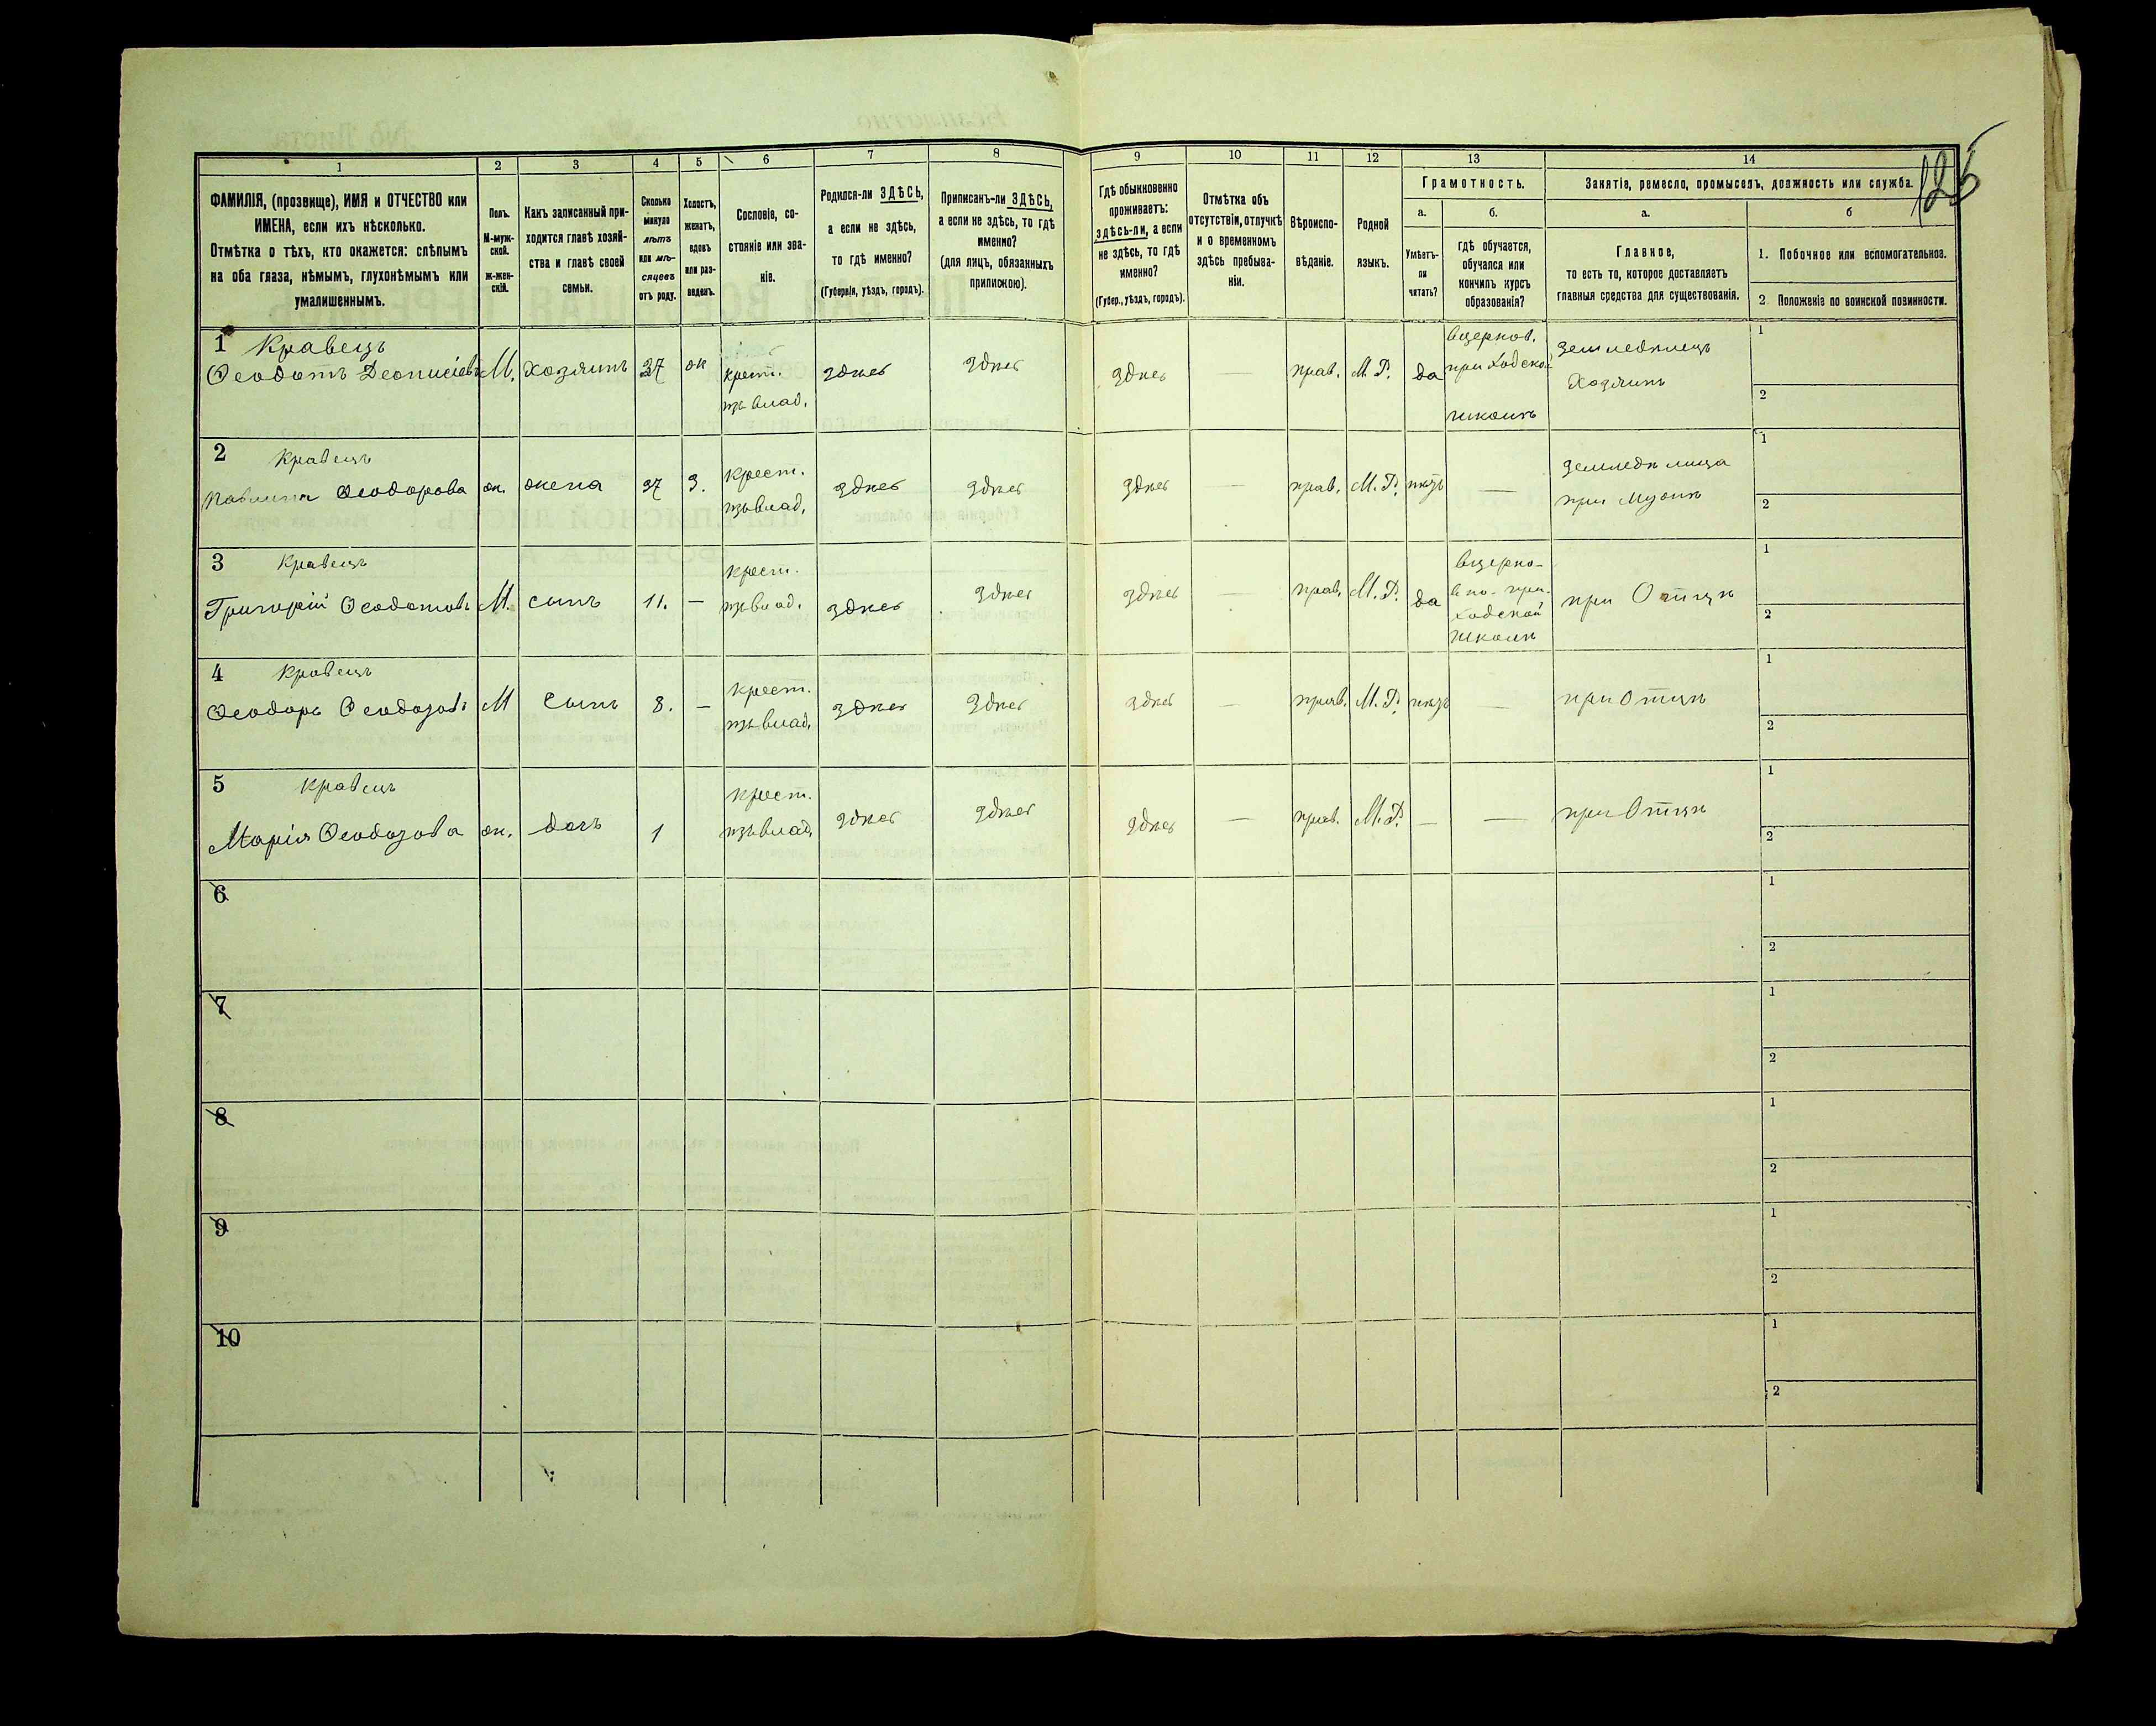 125
1 2 3 4 5 6 7 8 9 10 11 12 13 14
ФАМИЛІЯ, (прозвище), ИМЯ и ОТЧЕСТВО или
ИМЕНА, если ихъ нѣсколько.
Отмѣтка о тѣхъ, кто окажется: слѣпымъ
на оба глаза, нѣмымъ, глухонѣмымъ или
умалишеннымъ.
Полъ.
М-муж-
ской.
ж-жен-
скій.
Какъ записанный при-
ходится главѣ хозяй-
ства и главѣ своей
семьи.
Сколько
минуло
лѣтъ
или мѣ-
сяцевъ
отъ роду.
Холостъ,
женатъ,
вдовъ
или раз-
веденъ.
Сословіе, со-
стояніе или зва-
ніе.
Родился-ли ЗДѢСЬ,
а если не здѣсь,
то гдѣ именно?
(Губернія, уѣздъ, городъ).
Приписанъ-ли ЗДѢСЬ,
а если не здѣсь, то гдѣ
именно?
(для лицъ, обязанныхъ
припискою).
Гдѣ обыкновенно
проживаетъ:
здѣсь-ли, а если
не здѣсь, то гдѣ
именно?
(Губер., уѣздъ, городъ).
Отмѣтка объ
отсутствіи, отлучкѣ
и о временномъ
здѣсь пребыва-
ніи.
Вѣроиспо-
вѣданіе.
Родной
языкъ.
Грамотность.
а.
Умѣетъ-
ли
читать?
б.
гдѣ обучается,
обучался или
кончилъ курсъ
образованія?
Занятіе, ремесло, промыселъ, должность или служба.
а.
Главное,
то есть то, которое доставляетъ
главныя средства для существованія.
б
1. Побочное или вспомогательное.
2 Положеніе по воинской повинности.
1 Кравецъ
Ѳеодотъ Деонисіевъ М. хозяинъ 37 ж крест. изъ влад. здѣсь здѣсь здѣсь — прав. М. Р. да
вцерков.
при ходской
школѣ
земледѣлецъ
Хозяинъ
1
2
2 Кравецъ
Ѳеодорова ж. жена 37 З. крест. изъ влад. здѣсь здѣсь здѣсь — прав. М. Р. нѣтъ —
земледѣлица
при Мужѣ
1
2
3 Кравецъ
Григорій Ѳеодотовъ М. сынъ 11. — крест. изъ влад. здѣсь здѣсь здѣсь — прав. М. Р. да
вцерко-
вно-при-
ходской
школѣ
при Отцѣ
1
2
4 Кравецъ
Ѳеодоръ М сынъ 8. — крест. изъ влад. здѣсь здѣсь здѣсь — прав. М. Р. нѣтъ —
при Отцѣ
1
2
5 Кравецъ
Марія ж. дочь 1 крест. изъ влад. здѣсь здѣсь здѣсь — прав. М. Р. — —
при Отцѣ
1
2
6
1
2
7
1
2
8
1
2
9
1
2
10
1
2